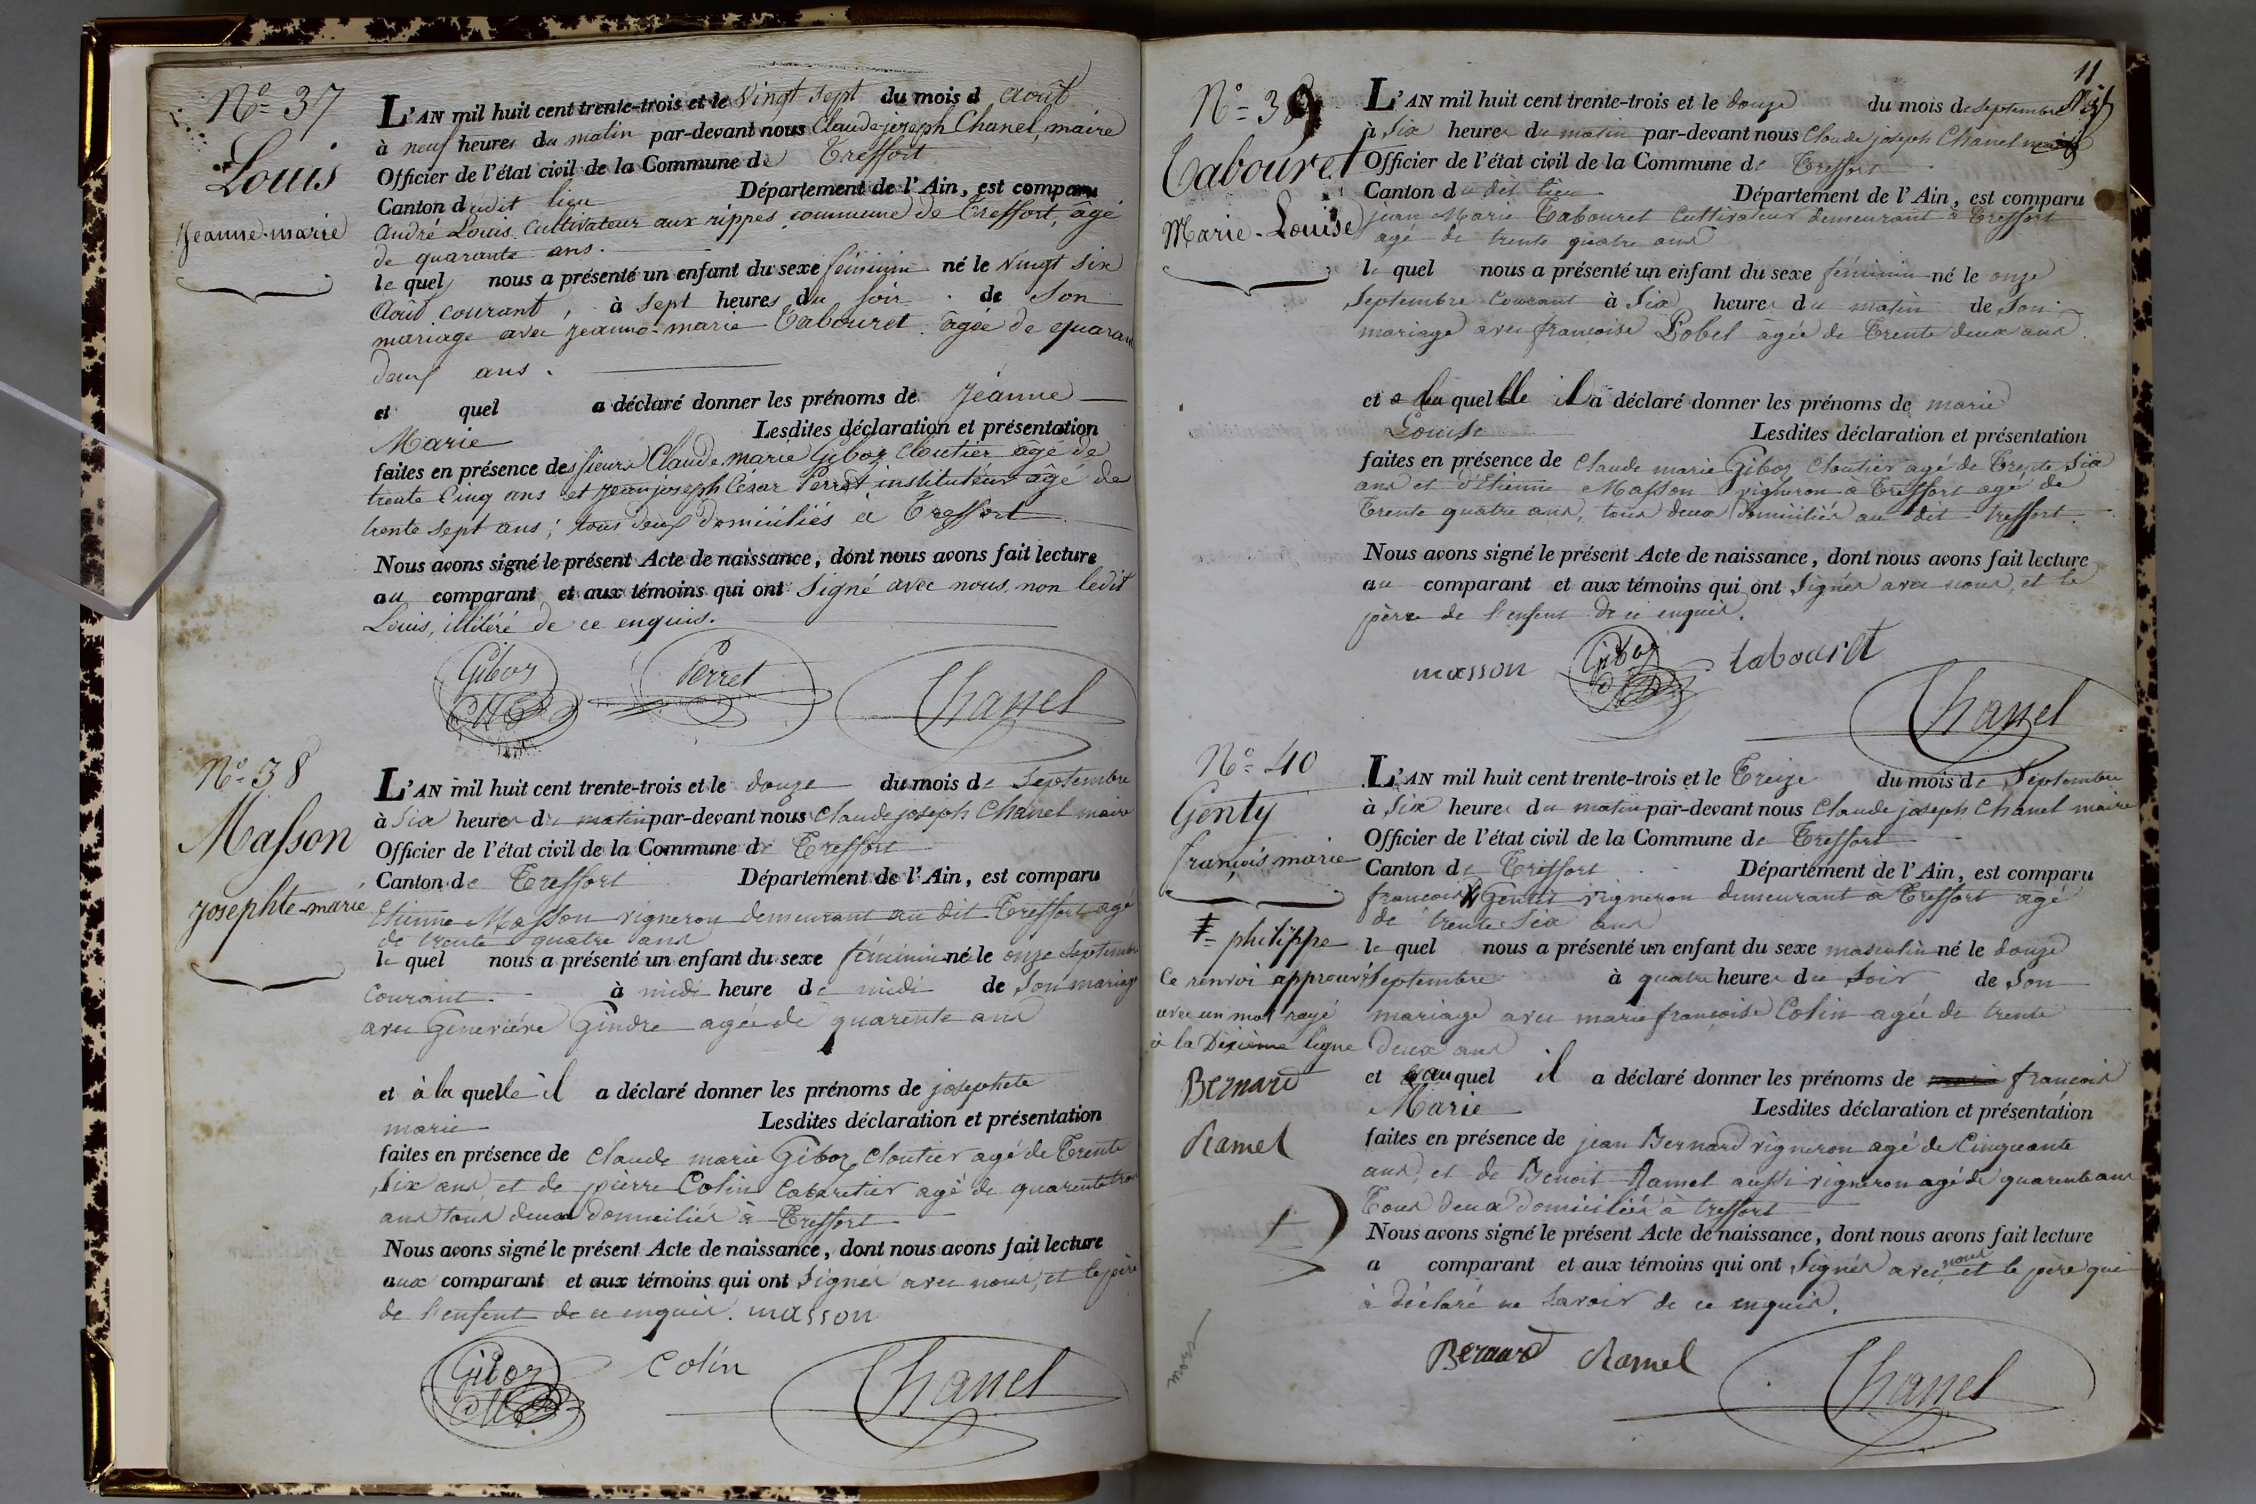 N° 37
Louis
Jeanne-marie
L'AN mil huit cent trente-trois et le Vingt sept du mois d août
à neuf heures du matin par-devant nous Claude-joseph Chanel, maire
Officier de l'état civil de la Commune de Treffort
Canton dudit lieu Département de l'Ain, est comparu
André Louis, Cultivateur aux rippes, commune de Treffort, âgé
de quarante ans.
le quel nous a présenté un enfant du sexe féminin né le Vingt six
Août courant, à sept heures du soir de Son
mariage avec Jeanne-marie Tabouret âgée de quaran
deux ans.
et quel a déclaré donner les prénoms de Jéanne
Marie Lesdites déclaration et présentation
faites en présence des sieurs Claude marie Giboz Cloutier âgé de
trente Cinq ans et Jean joseph César Perret instituteur âgé de
trente sept ans; tous deux domiciliés à Treffort
Nous avons signé le présent Acte de naissance, dont nous avons fait lecture
au comparant et aux témoins qui ont Signé avec nous, non ledit
Louis, illitéré de ce enquis.
Giboz Perret Chanel
N° 38
Masson
josephte-marie
L'AN mil huit cent trente-trois et le douze du mois de Septembre
à Six heures du matin par-devant nous Claude joseph Chanel maire
Officier de l'état civil de la Commune de Treffort
Canton de Treffort Département de l'Ain, est comparu
Etienne Masson vigneron demeurant au dit Treffort agé
de trente quatre ans
le quel nous a présenté un enfant du sexe féminin né le onze Septembre
Courant à midi heure de midi de Son mariage
avec Geneviéve Gindre agée de quarente ans
et à la quelle il a déclaré donner les prénoms de josephete
marie Lesdites déclaration et présentation
faites en présence de Claude marie Giboz Cloutier agé de Trente
Six ans et de pierre Colin Cabaretier agé de quarente trois
ans tous deux domiciliés à Treffort
Nous avons signé le présent Acte de naissance, dont nous avons fait lecture
aux comparant et aux témoins qui ont Signés avec nous, et le père
de l'enfent de ce enquis. masson
Giboz Colin Chanel
11
N° 39
Tabouret
Marie-Louise
L'AN mil huit cent trente-trois et le douze du mois de Septembre
à Six heures du matin par-devant nous Claude joseph Chanel maire
Officier de l'état civil de la Commune de Treffort
Canton du dit lieu Département de l'Ain, est comparu
jean Marie Tabouret Cultivateur demeurant à Treffort
agé de trente quatre ans
le quel nous a présenté un enfant du sexe féminin né le onze
Septembre Courant à Six heures du matin de Son
mariage avec françoise Pobel agée de Trente deux ans.
et a la quelle il a déclaré donner les prénoms de marie
Louise Lesdites déclaration et présentation
faites en présence de Claude marie Giboz Cloutier agé de Trente Six
ans et d'Etienne Masson vigneron à Treffort agé de
Trente quatre ans, tous deux domiciliés au dit treffort.
Nous avons signé le présent Acte de naissance, dont nous avons fait lecture
au comparant et aux témoins qui ont Signés avec nous, et le
père de l'enfent de ce enquis.
masson Giboz tabouret
Chanel
N° 40
Genty
françois marie
philippe
Ce renvoi approuvé
avec un mot rayé
à la Dixième ligne
Bernard
Ramel
mors
L'AN mil huit cent trente-trois et le Treize du mois de Septembre
à Six heures du matin par-devant nous Claude joseph Chanel maire
Officier de l'état civil de la Commune de Treffort
Canton de Treffort Département de l'Ain, est comparu
françois Genti vigneron demeurant à Treffort agé
de trente Six ans
le quel nous a présenté un enfant du sexe masculin né le douze
Septembre à quatre heures du Soir de Son
mariage avec marie françoise Colin agée de trente
deux ans
et au quel il a déclaré donner les prénoms de marie françois
Marie Lesdites déclaration et présentation
faites en présence de jean Bernard vigneron agé de Cinquante
ans, et de Benoit Ramel aussi vigneron agé de quarente ans
Tous deux domiciliés à treffort
Nous avons signé le présent Acte de naissance, dont nous avons fait lecture
a comparant et aux témoins qui ont Signés avec nous et le père qui
à déclaré ne Savoir de ce enquis.
Bernard Ramel Chanel